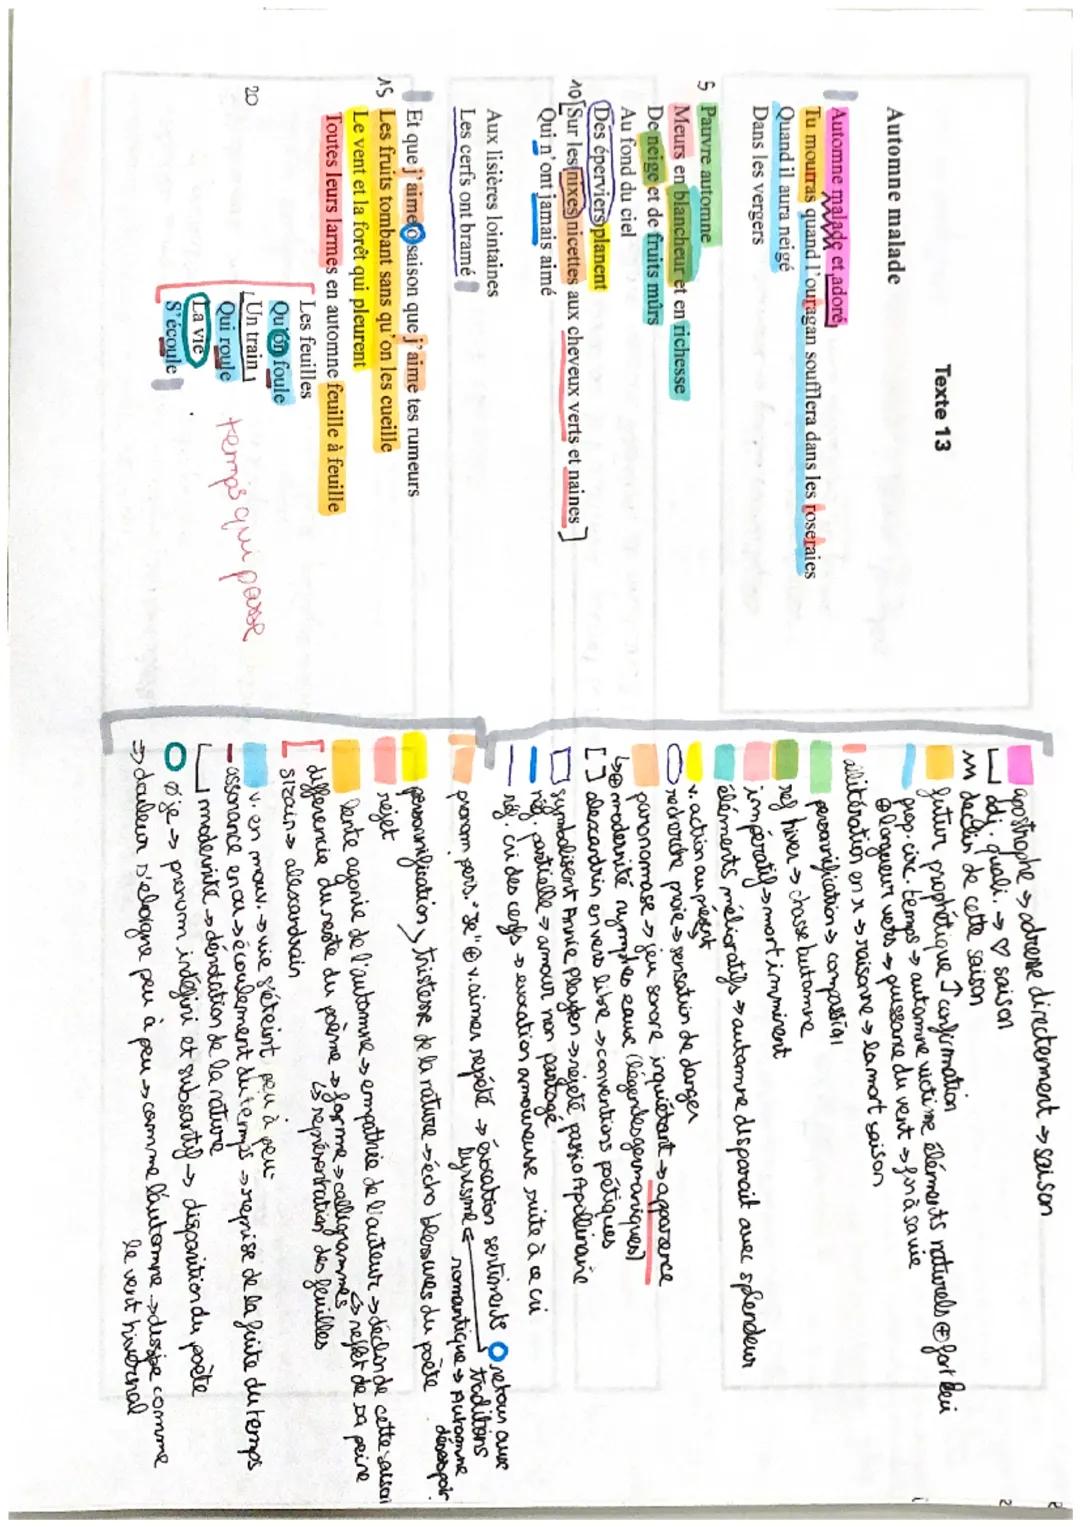 Texte 13
Automne malade
Automne malade et adoré
Tu mourras quand l'ouragan soufflera dans les roseraies
Quand il aura neigé
Dans les vergers
5 Pauvre automne
Meurs en blancheur et en richesse
De neige et de fruits mûrs
Au fond du ciel
Des éperviers planent
10 [Sur les nixes nicettes aux cheveux verts et naines]
Qui n'ont jamais aimé
Aux lisières lointaines
Les cerfs ont bramé
Et que j'aime ô saison que j'aime tes rumeurs
15 Les fruits tombant sans qu'on les cueille
Le vent et la forêt qui pleurent
Toutes leurs larmes en automne feuille à feuille
Les feuilles
Qu'on foule
20 Un train
Qui roule
La vie
S'écoule
temps qui passe
apostrophe → adresse directement → saison
adj. quali. → ♡ saison
déclin de cette saison
futur prophétique ↑ confirmation
prop. circ. temps → automne victime éléments naturels ⊕ fort lui
⊕ longueur vers → puissance du vent → fin à sa vie
allitération en r → raisonne → la mort saison
personnification → compassion
ref hiver → chasse l'automne
impératif → mort imminent
éléments mélioratifs → automne disparait avec splendeur
v. action au présent
recherche proie → sensation de danger
paronomase → jeu sonore inquiétant → apparence
↳ ⊕ modernité nymphes eaux (légendes germaniques)
[] alexandrin en vers libre → conventions poétiques
symbolisent Annie Playden → rejeté passio Apolinaire
nég. partielle → amour non partagé
rég. cri des cerfs → evocation amoureuse suite à ce cri
pronom pers. "Je" ⊕ v. aimer répété → évocation sentiments O retour aux traditions
lyrisme romantique → Automne désespoir
personnification, tristesse de la nature → écho blessures du poète
rejet
lente agonie de l'automne → empathie de l'auteur → déclin de cette saison
↳ reflet de sa peine
differencie du reste du poème → forme → calligrammes
↳ représentation des feuilles
sizain → alexandrain
v. en mouv. → vie s'éteint peu à peu
assonance en ou → écoulement du temps → reprise de la fuite du temps
modernité → dénotation de la nature
O Ø je → pronom indéfini et subsantif → disparition du poète
⇒ douleur s'eloigne peu à peu → comme l'automne → dissipe comme
le vent hivernal